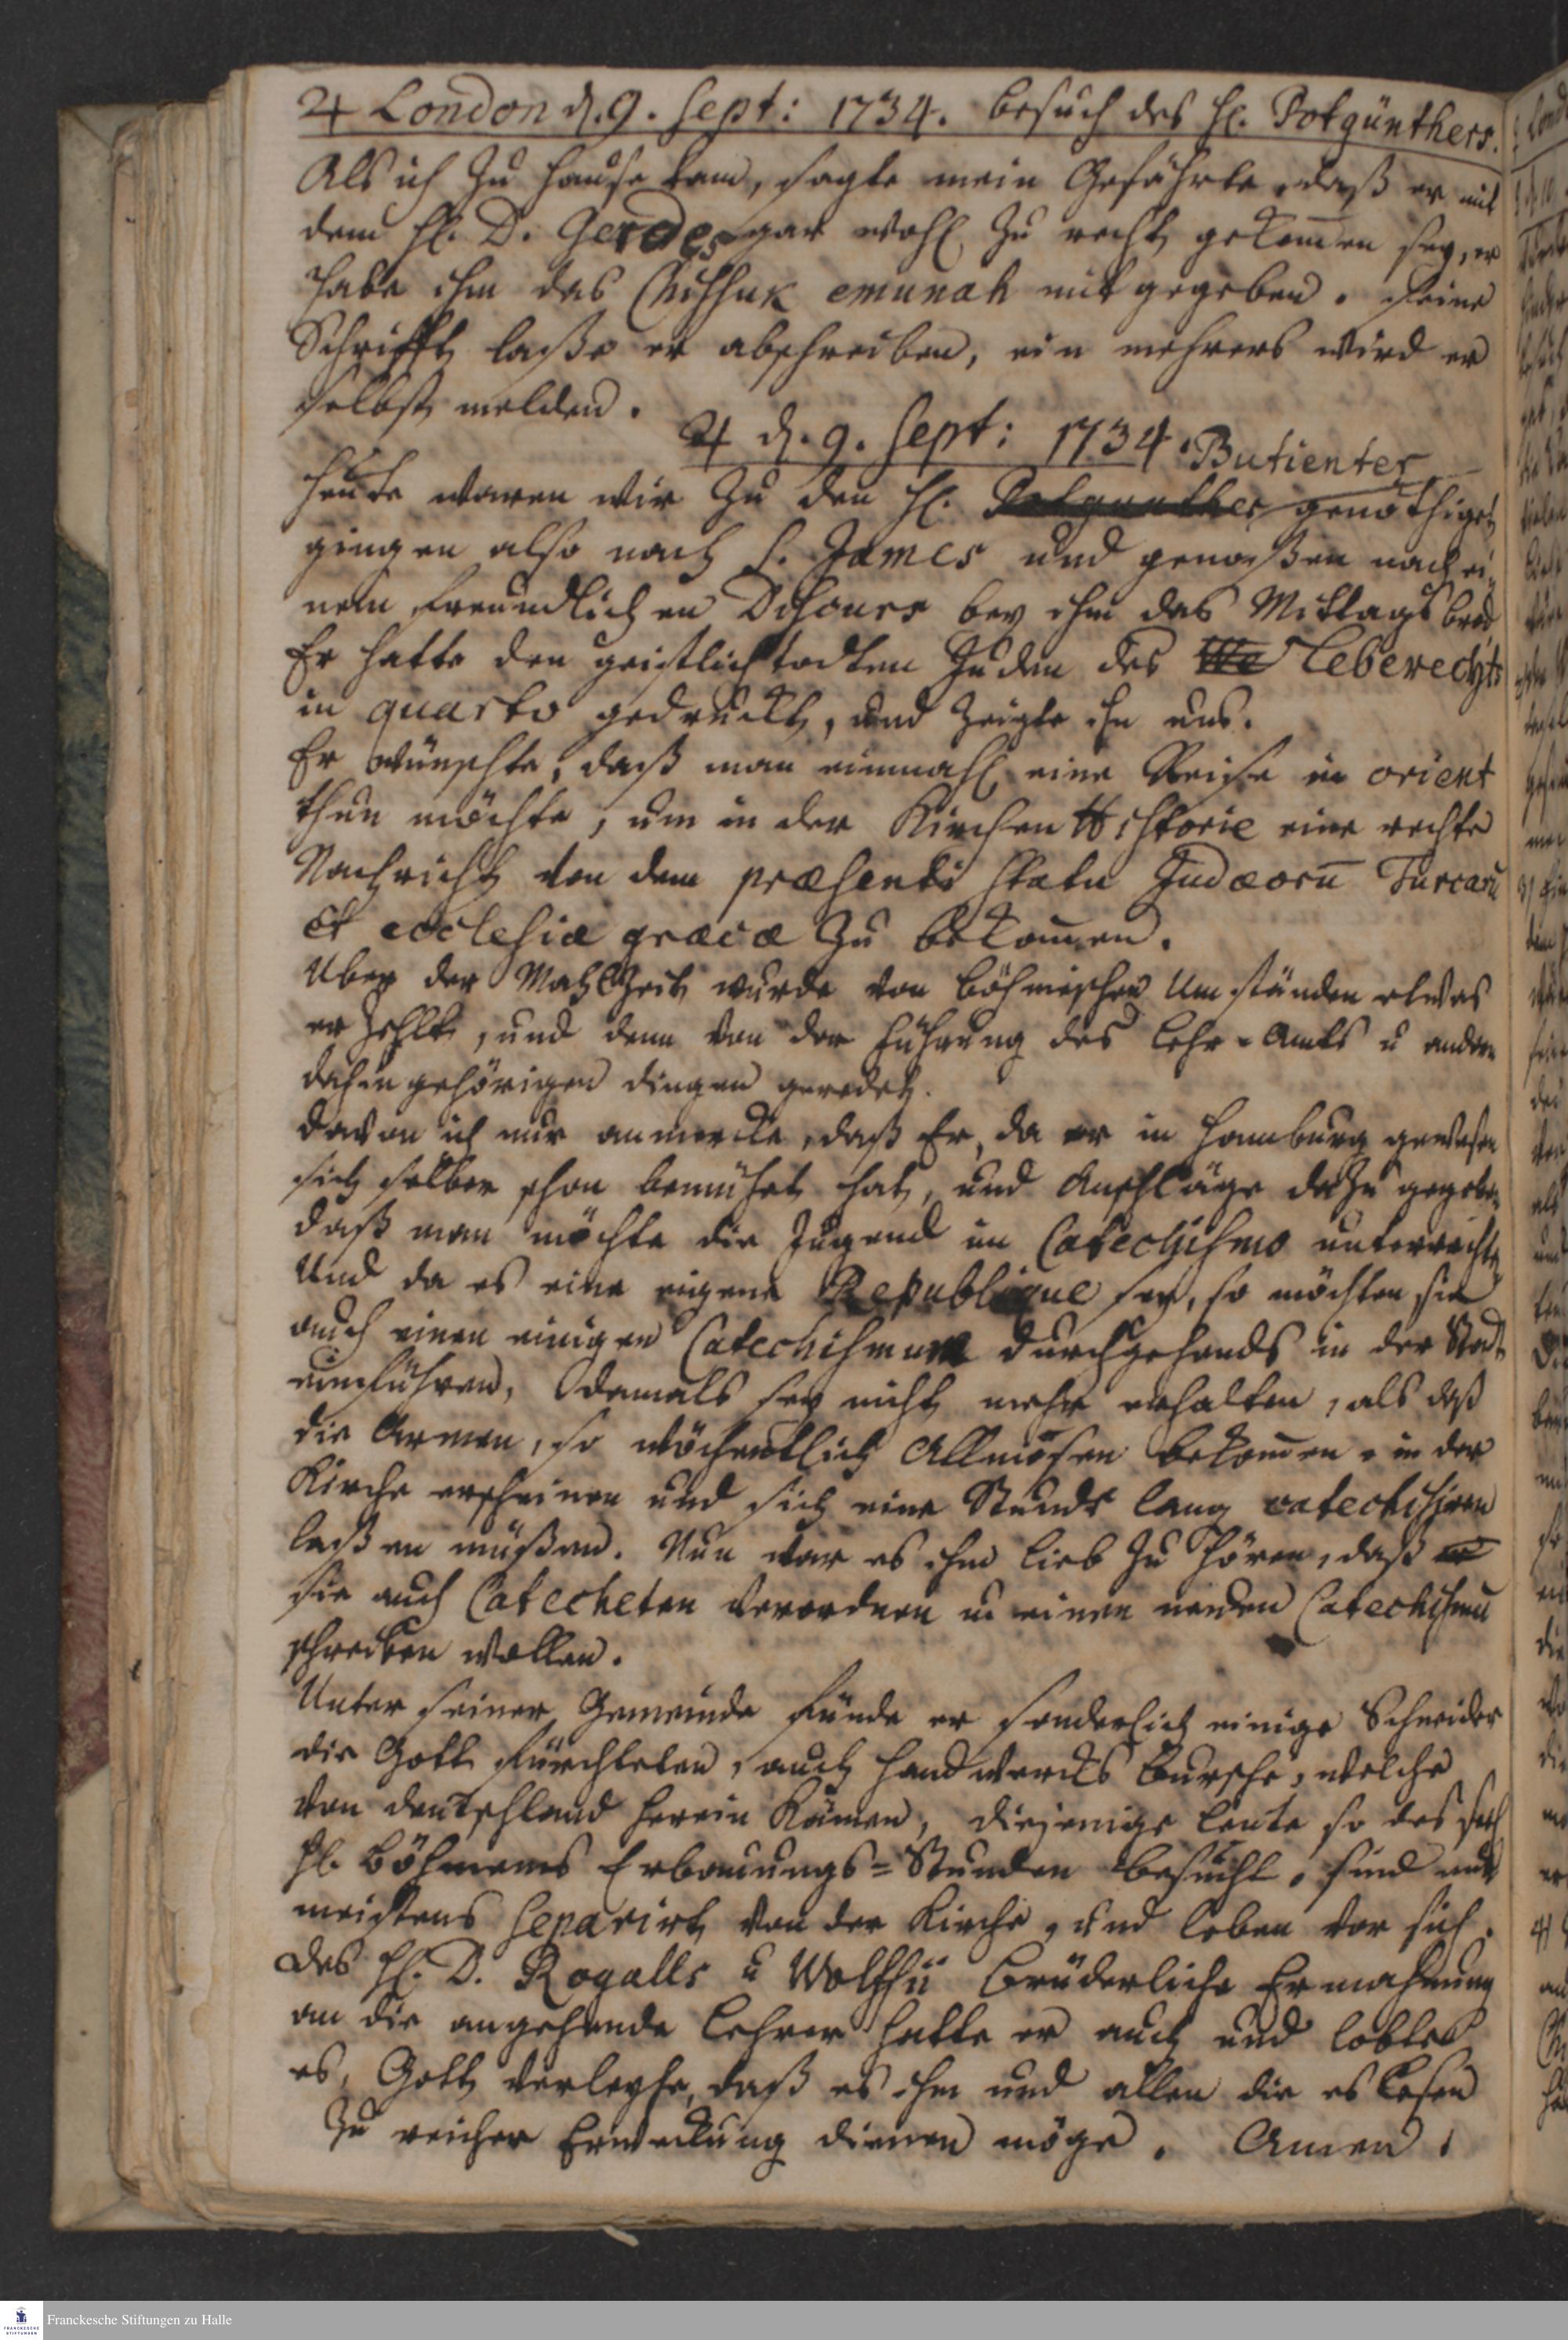 ♃ London d. 9. Sept: 1734. Besuch des H. Potgünthers.
Als ich zu Hause kam, sagte mein Gefährte, daß er mit
dem H. D. Gerdes gar wohl zu recht gekom̄en sey, er
habe ihm das Chissuk emunah mit gegeben. Seine
Schrifft laße er abschreiben, ein mehrers wird er
selbst melden.
♃ d. 9. Sept: 1734. Butienter
Heute waren wir zu den H. Potgunther genöthiget
gingen also nach S. James und genoßen nach ei-
nem freundlichen Discours bey ihm das Mittags brod,
Er hatte den geistlich todten Juden des Leberechts
in quarto gedruckt, und zeigte ihn uns.
Er wünschte, daß man einmahl eine Reise in orient
thun möchte, um in der Kirchen Historie eine rechte
Nachricht von dem præsenti statu Judæorū Turcarū
et ecclesiæ græcæ zu bekom̄en.
Uber der Mahlzeit wurde von böhmischen Umständen etwas
erzehlt, und denn von der Führung des Lehr-Amts u andern
dahin gehörigen dingen geredet.
davon ich nur anmercke, daß Er, da er in Hamburg gewesen
sich selber schon bemühet hat, und Anschläge dazu gegeben
daß man möchte die Jugend im Catechismo unterrichten
Und da es eine eigene Republique sey, so möchten sie
auch einen einigen Catechismum durchgehends in der Stadt
einführen, Damals sey nicht mehr erhalten, als daß
die Armen, so wöchentlich Allmosen bekom̄en, in der
Kirche erscheinen und sich eine Stunde lang catechisiren
laßen müßen. Nun war es ihm lieb zu hören, daß
sie auch Catecheten verordnen u einen neuen Catechismū
schreiben wollen.
Unter seiner Gemeinde fünde er sonderlich einige Schneider
die Gott fürchteten, auch Handwercks Bursche, welche
von deutschland herein kämen, diejenige Leute so des sel
H. Böhmens Erbauungs-Stunden besucht, sind nun
meistens separirt von der Kirche, und leben vor sich.
des H. D. Rogalls u Wolffii Brüderliche Ermahnung
an die angehende Lehrer hatte er auch und lobte
es, Gott verleyhe, daß es ihm und allen die es lesen
zu reicher Erweckung dienen möge. Amen!
Franckesche Stiftungen zu Halle